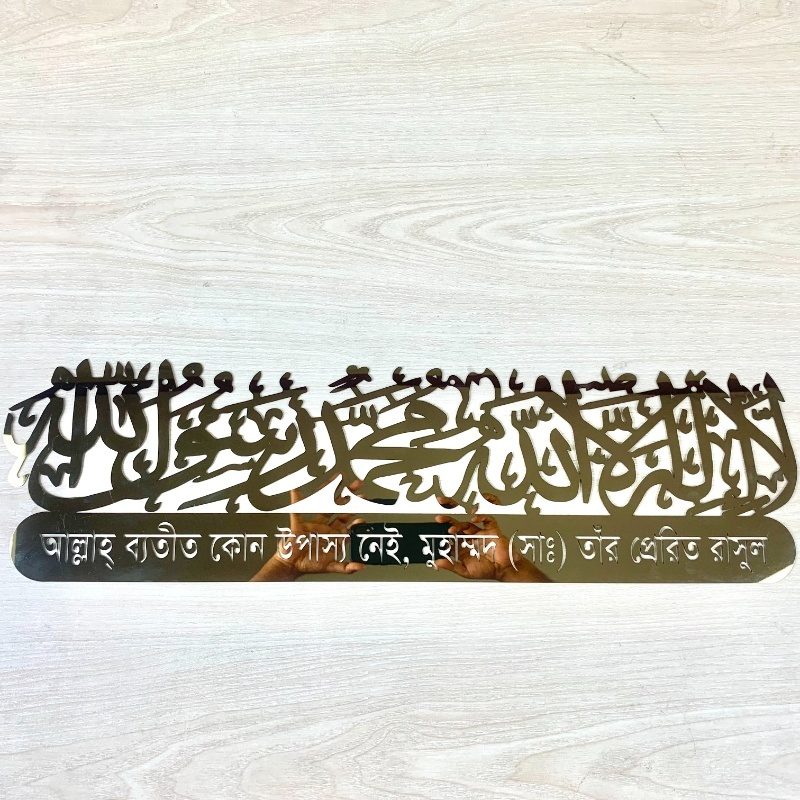 لا إله إلا الله محمد رسول الله
আল্লাহ্ ব্যতীত কোন উপাস্য নেই, মুহাম্মদ (সাঃ) তাঁর প্রেরিত রাসুল